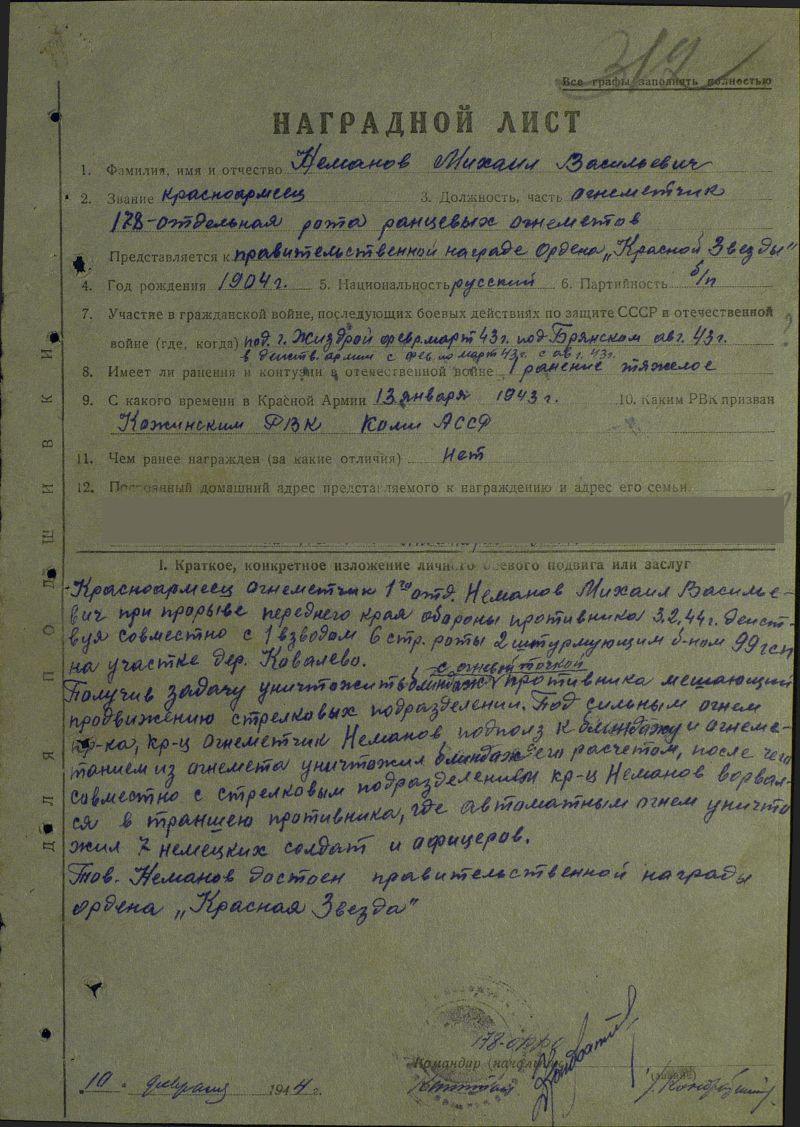 319
Все графы заполнять полностью
НАГРАДНОЙ ЛИСТ
1. Фамилия, имя и отчество Неманов Михаил Васильевич
2. Звание красноармеец 3. Должность, часть огнеметчик
178-отдельная рота ранцевых огнеметов
Представляется к правительственной награде Ордена „Красной Звезды"
4. Год рождения 1904 г. 5. Национальность русский 6. Партийность б/п
7. Участие в гражданской войне, последующих боевых действиях по защите СССР и отечественной
войне (где, когда) под г. Жиздрой февр. март 43 г. под Брянском авг. 43 г.
в действ. армии с фев. по март 43 г. с авг. 43 г.
8. Имеет ли ранения и контузии в отечественной войне 1 ранение тяжелое
9. С какого времени в Красной Армии 13 января 1943 г. 10. Каким РВК призван
Кожинским РВК Коми АССР
11. Чем ранее награжден (за какие отличия) нет
12. Постоянный домашний адрес представляемого к награждению и адрес его семьи
I. Краткое, конкретное изложение личного боевого подвига или заслуг
Красноармеец огнеметчик 1го отд. Неманов Михаил Василье-
вич при прорыве переднего края обороны противника 3.2.44 г. дейст-
вуя совместно с 1 взводом 6 стр. роты 2 штурмующим б-ном 99 гсп
на участке дер. Ковалево.
Получив задачу уничтожить блиндаж с огневой точкой противника мешающий
продвижению стрелковых подразделений. Под сильным огнем
пр-ка, кр-ц огнеметчик Неманов подполз к блиндажу и огнеме-
танием из огнемета уничтожил блиндаж с его расчетом, после чего
совместно с стрелковым подразделением кр-ц Неманов ворвал-
ся в траншею противника, где автоматным огнем уничто
жил 7 немецких солдат и офицеров.
Тов. Неманов достоен правительственной награды
ордена „Красная Звезда"
178-орро
Командир (начальник
(звание)
10 февраля 1944 г.
ДЛЯ ПОДШИВКИ